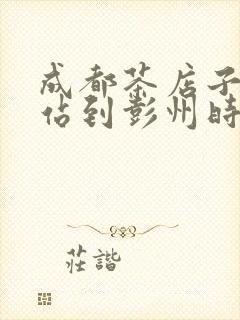 成都茶店子
佔到彭州時
莊諧